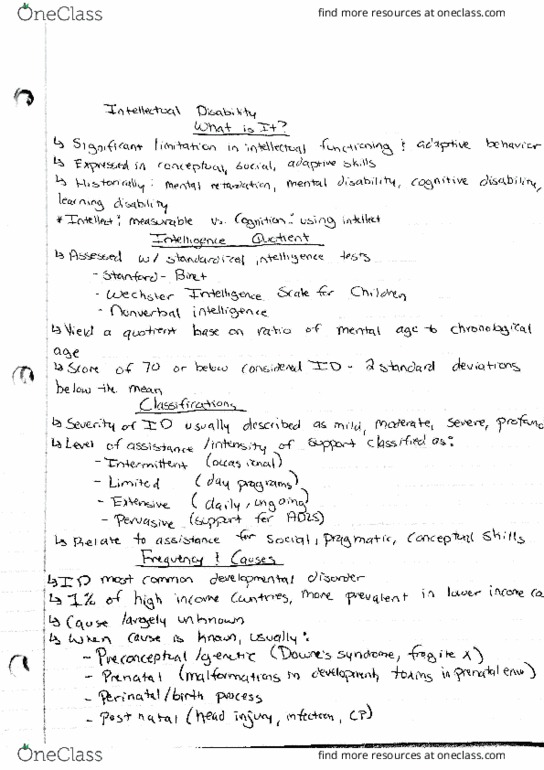 OneClass
find more resources at oneclass.com
Intellectual Disability
What is It?
↳ Significant limitation in intellectual functioning & adaptive behavior
↳ Expressed in conceptual, social, adaptive skills
↳ Historically: mental retardation, mental disability, cognitive disability,
learning disability
* Intellect: measurable vs. Cognition: using intellect
Intelligence Quotient
↳ Assessed w/ standardized intelligence tests
- Stanford-Binet
- Wechsler Intelligence Scale for Children
- Nonverbal intelligence
↳ Yield a quotient base on ratio of mental age to chronological
age
↳ Score of 70 or below considered ID - 2 standard deviations
below the mean
Classifications
↳ Severity of ID usually described as mild, moderate, severe, profound
↳ Level of assistance/intensity of support classified as:
- Intermittent (occasional)
- Limited (day programs)
- Extensive (daily, ongoing)
- Pervasive (support for ADLs)
↳ Relate to assistance for social, pragmatic, conceptual skills
Frequency & Causes
↳ ID most common developmental disorder
↳ 1% of high income countries, more prevalent in lower income co
↳ Cause largely unknown
↳ When cause is known, usually:
- Preconceptual/genetic (Down's syndrome, fragile X)
- Prenatal (malformations in development, toxins in prenatal env)
- Perinatal/birth process
- Post natal (head injury, infection, CP)
OneClass
find more resources at oneclass.com